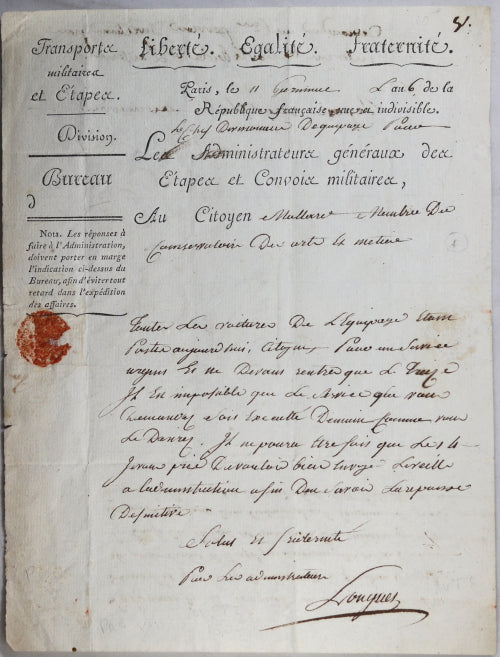 Transports
militaires
et Étapes.
Division.
Bureau
d
NOTA. Les réponses à
faire à l'Administration,
doivent porter en marge
l'indication ci-dessus du
Bureau, afin d'éviter tout
retard dans l'expédition
des affaires.
Liberté. Égalité. Fraternité.
Paris, le 11 L'an 6 de la
République française une et indivisible.
Le Chef
Les Administrateurs généraux des
Étapes et Convois militaires,
Au Citoyen Membre Du
Conservatoire Des arts Et metiers
Toutes Les voitures De L'Equipage Etant
aujourdhui, Citoyen, Pour un Service
urgent Et ne Devant rentré que Le Treize
Il Est impossible que Le Service que vous
Demandez Soit Executé Demain Comme vous
Le Desirez. Il ne poura être fait que Le 14
Je vous prie De vouloir bien Envoyé La veille
a Ladministration afin D'en Savoir La reponse
Definitive
Salut et fraternité
Pour Les administrateurs